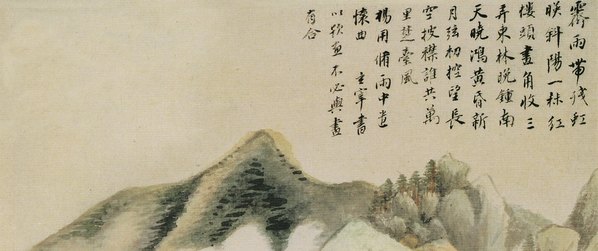 霽雨帶殘虹
映斜陽一抹紅
樓頭畫角收三
弄東林晚鍾南
天晚鴻黃昏新
月弦初控望長
空披襟誰共萬
里楚臺風
楊用脩雨中遣
懷曲 玄宰書
以欵畫不必與畫
有合